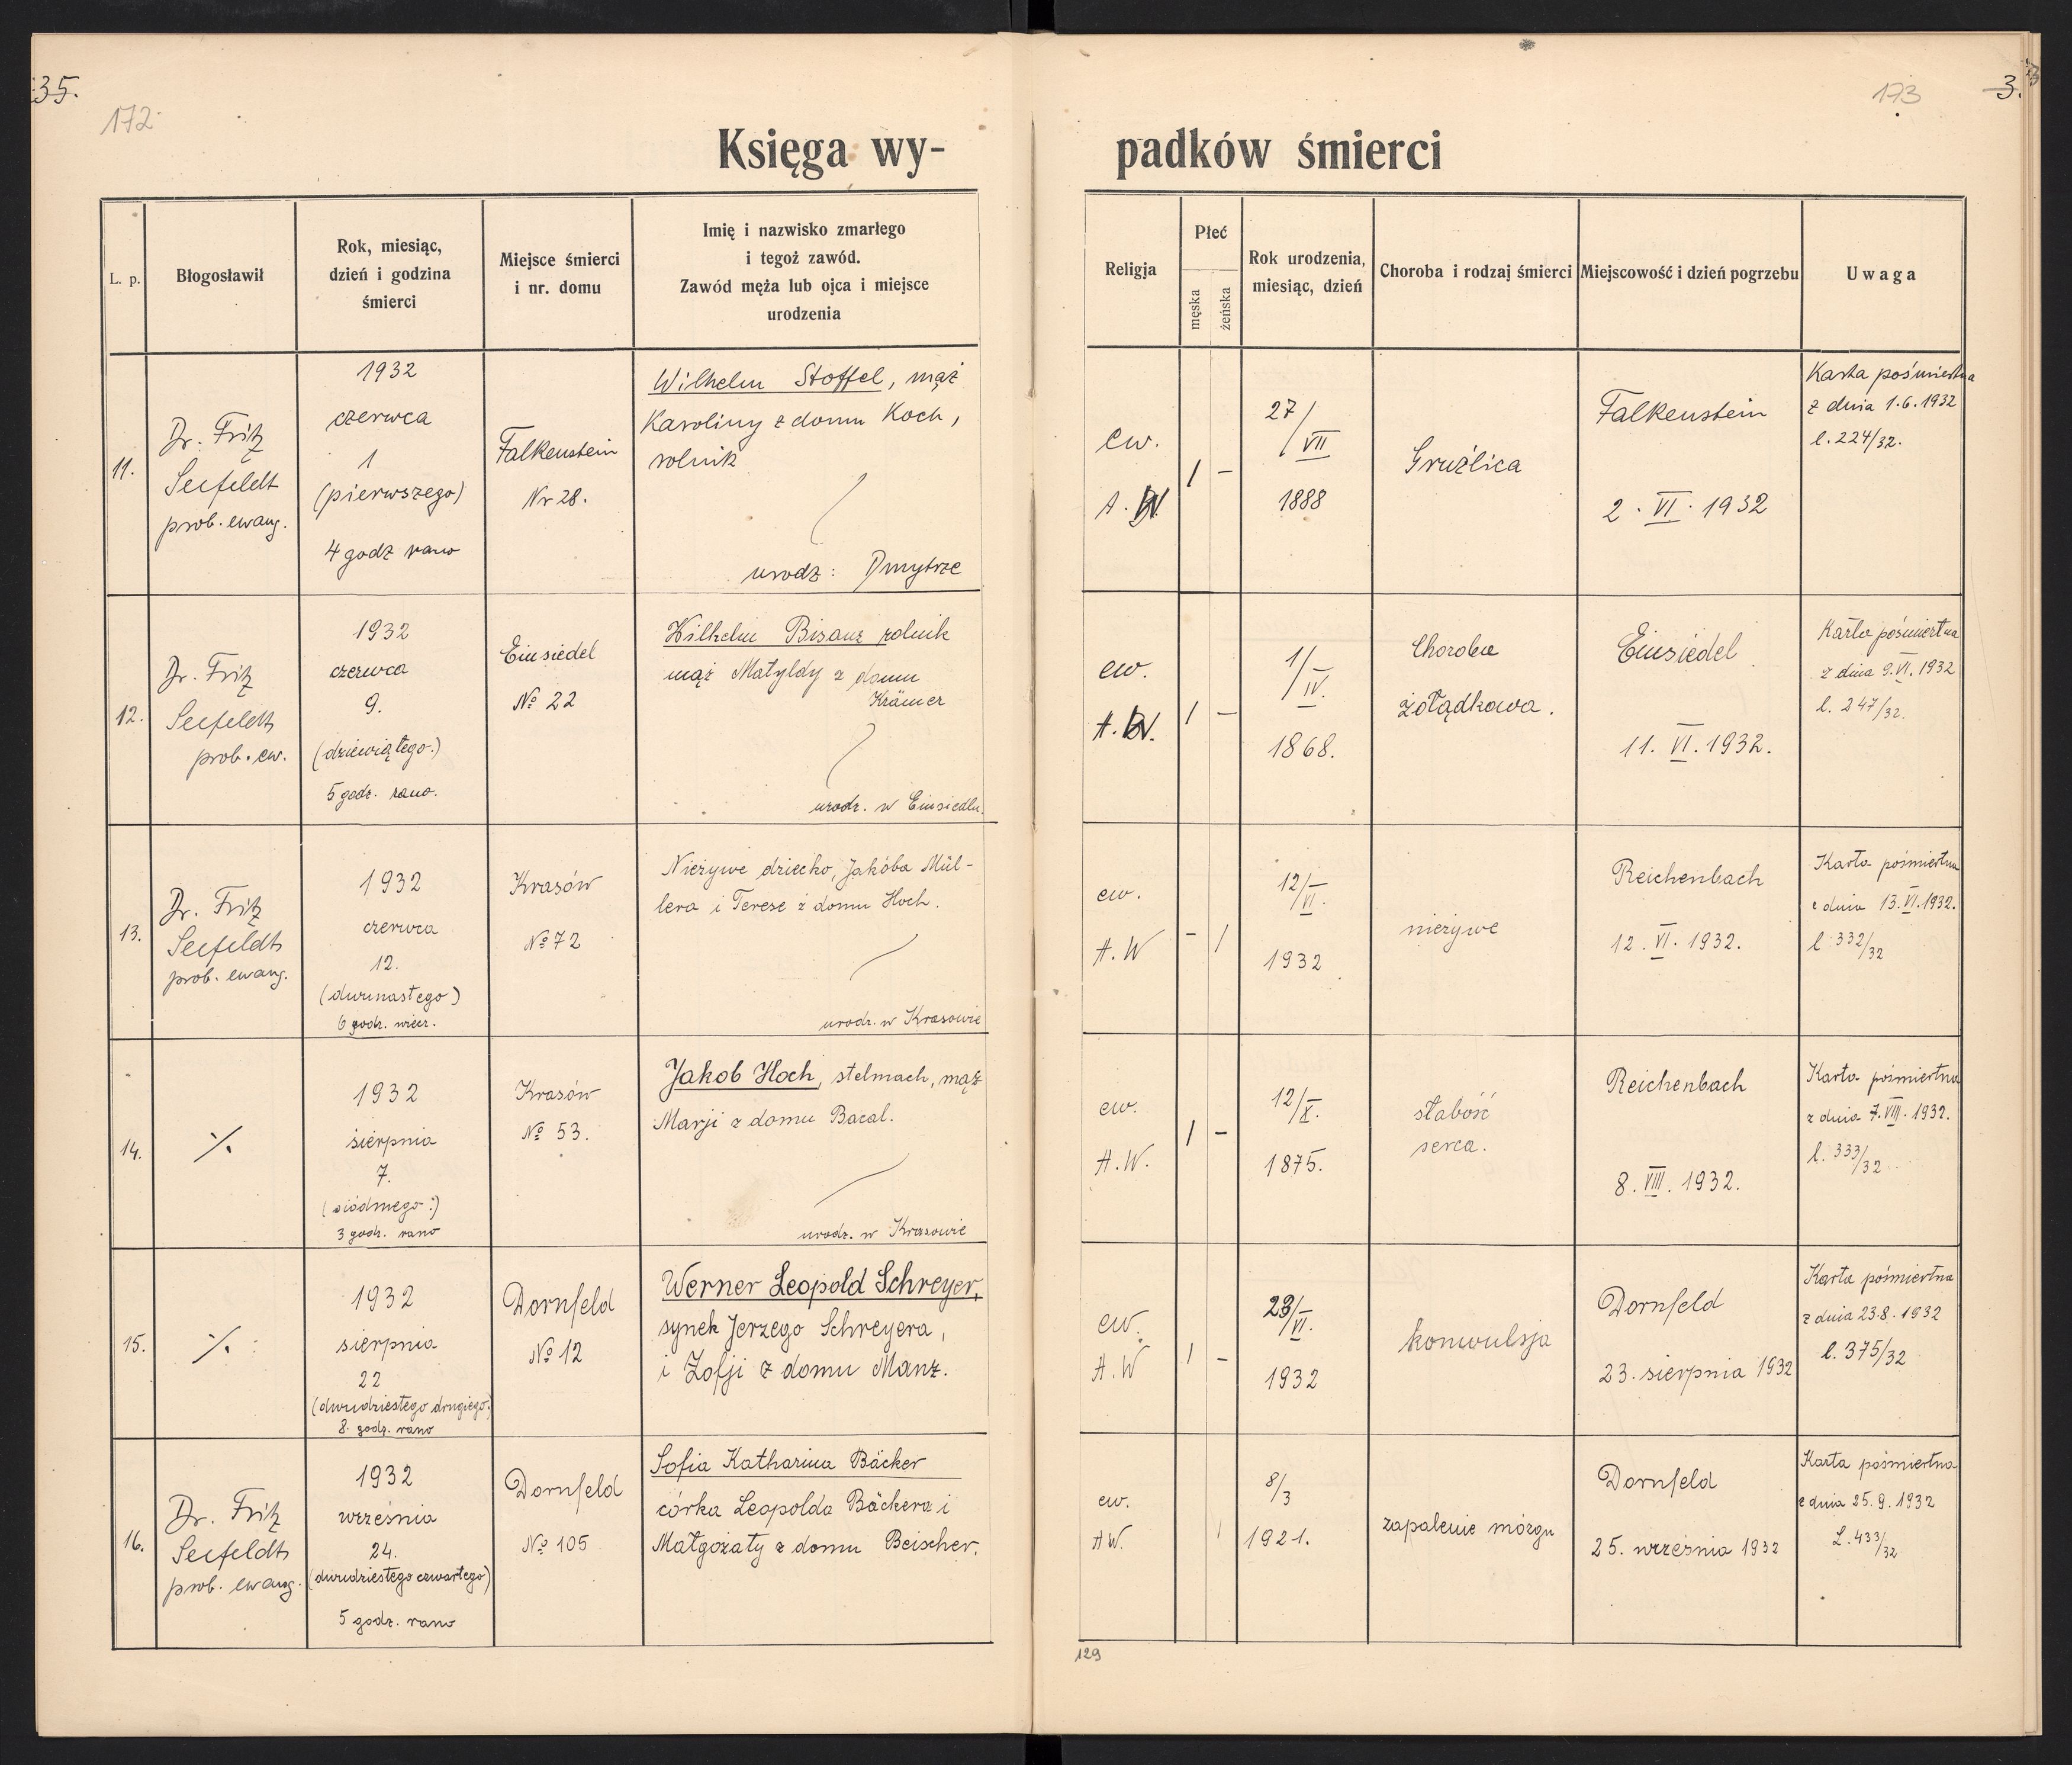 35.
172
173
3.
Księga wy-
padków śmierci
L. p.
Błogosławił
Rok, miesiąc,
dzień i godzina
śmierci
Miejsce śmierci
i nr. domu
Imię i nazwisko zmarłego
i tegoż zawód.
Zawód męża lub ojca i miejsce
urodzenia
Religja
Płeć
męska
żeńska
Rok urodzenia,
miesiąc, dzień
Choroba i rodzaj śmierci
Miejscowość i dzień pogrzebu
Uwaga
11.
Dr. Fritz
Seefeldt
prob. ewang.
1932
czerwca
1
(pierwszego)
4 godz rano
Falkenstein
Nr 28.
Wilhelm Stoffel, mąż
Karoliny z domu Koch,
rolnik
urodz: Dmytrze
ew.
A. W.
1 -
27/VII
1888
Gruźlica
Falkenstein
2. VI. 1932
Karta pośmiertna
z dnia 1.6.1932
l. 224/32.
12.
Dr. Fritz
Seefeldt
prob. ew.
1932
czerwca
9.
(dziewiątego.)
5 godz. rano.
Einsiedel
No 22
Wilhelm Bisanz rolnik
mąż Matyldy z domu
Krämer
urodz. w Einsiedlu.
ew.
A. W.
1 -
1/IV.
1868.
Choroba
żołądkowa.
Einsiedel
11. VI. 1932.
Karta pośmiertna
z dnia 9.VI.1932
l. 247/32.
13.
Dr. Fritz
Seefeldt
prob. ewang.
1932
czerwca
12.
(dwunastego)
6 godz. wiecz.
Krasów
No 72
Nieżywe dziecko, Jakóba Mül-
lera i Terese z domu Hoch.
urodz. w Krasowie
ew.
A. W
- 1
12/VI.
1932
nieżywe
Reichenbach
12. VI. 1932.
Karta pośmiertna
z dnia 13.VI.1932.
l. 332/32
14.
·/.
1932
sierpnia
7.
(siódmego:)
3 godz. rano
Krasów
No 53.
Jakob Hoch, stelmach, mąż
Marji z domu Bacal.
urodz. w Krasowie
ew.
A. W.
1 -
12/X.
1875.
słabość
serca.
Reichenbach
8. VIII. 1932.
Karta pośmiertna
z dnia 7.VIII.1932.
l. 333/32
15.
·/.
1932
sierpnia
22
(dwudziestego drugiego.)
8. godz. rano
Dornfeld
No 12
Werner Leopold Schreyer,
synek Jerzego Schreyera,
i Zofji z domu Manz.
ew.
A. W
1 -
23/VI.
1932
konwulsja
Dornfeld
23. sierpnia 1932
Karta pośmiertna
z dnia 23.8.1932
l. 375/32
16.
Dr. Fritz
Seefeldt
prob. ewang.
1932
września
24.
(dwudziestego czwartego)
5 godz. rano
Dornfeld
No 105
Sofia Katharina Bäcker
córka Leopolda Bäckera i
Małgożaty z domu Beischer.
ew.
AW.
1
8/3
1921.
zapalenie mózgu
Dornfeld
25. września 1932
Karta pośmiertna
z dnia 25.9.1932
L. 433/32
129